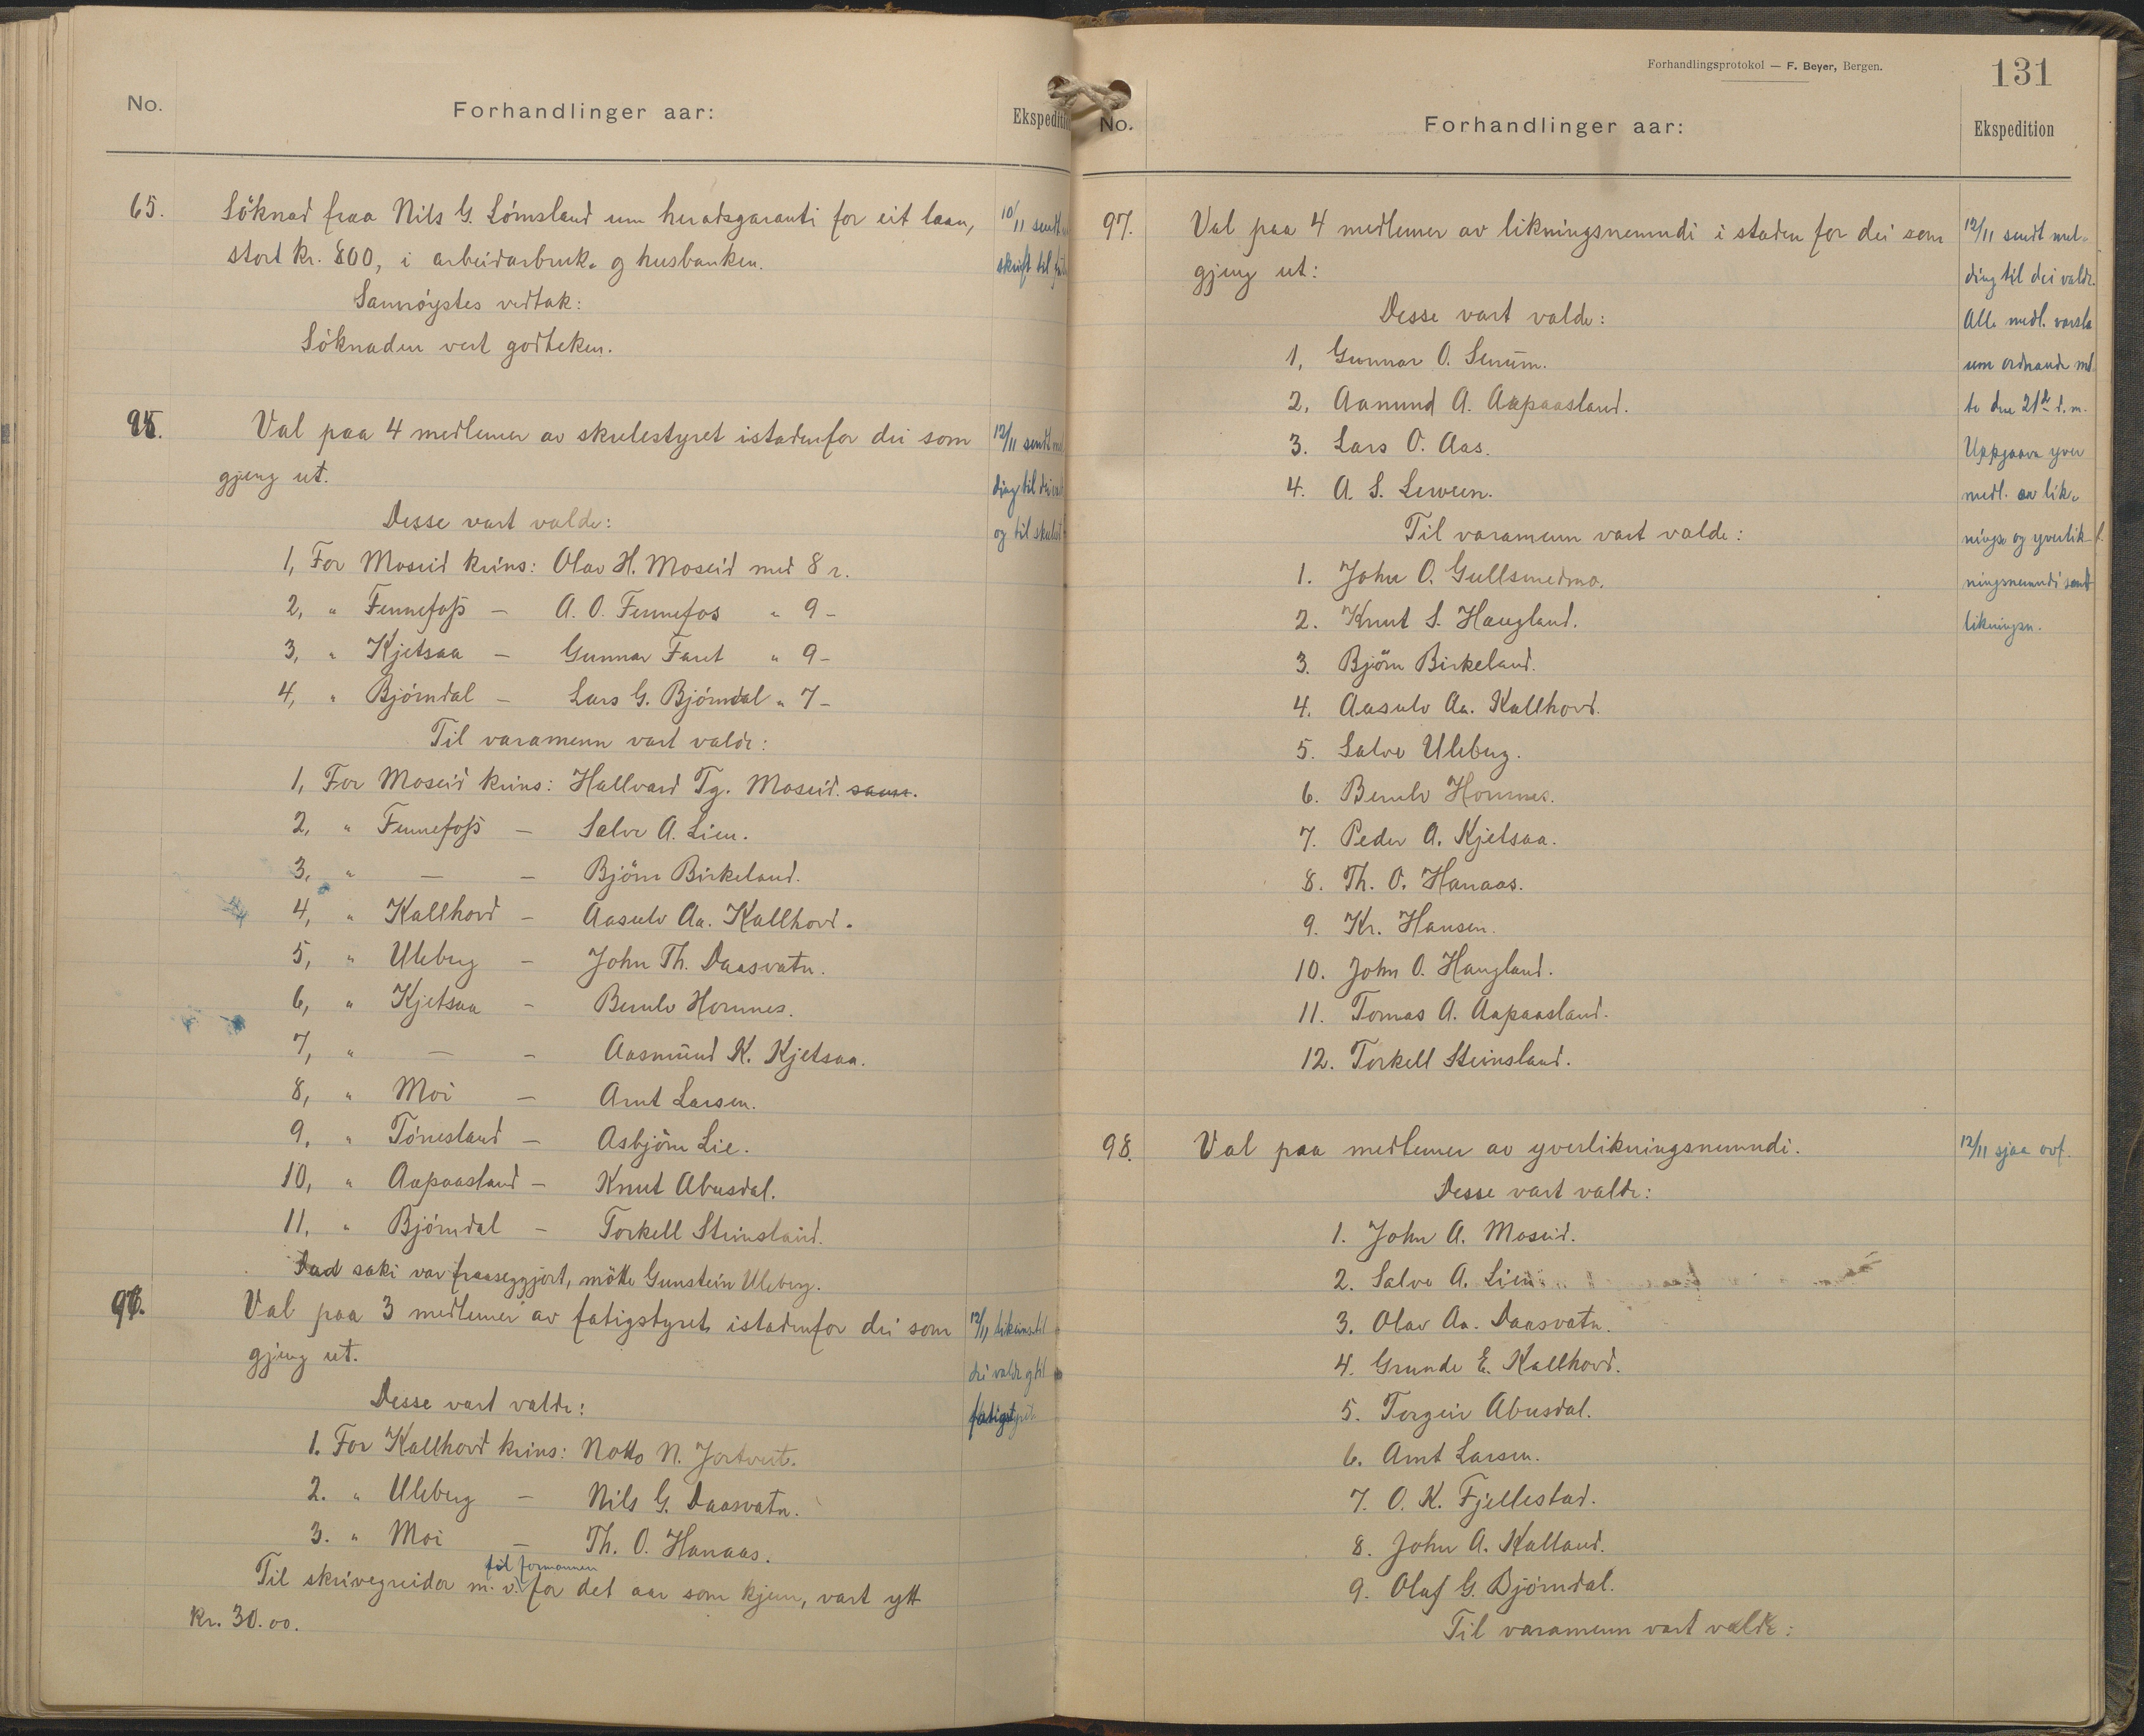 No.
Forhandlinger aar:
Ekspedition
65.
Söknad fraa Nils G. Lömsland um heradsgaranti for eit laan,
stort kr. 800, i arbeidarbruk- og husbanken.
Samröystes vedtak:
Söknaden vert godteken.
10/11 sendt
skrift til
95.
Val paa 4 medlemer av skulestyret istadenfor dei som
gjeng ut.
Desse vart valde:
1, For Moseid krins: Olav H. Moseid med 8 r.
2, " Fennefoss — A. O. Fennefos " 9 –
3, " Kjetsaa — Gunnar Faret " 9 –
4, " Björndal — Lars G. Björndal " 7 –
Til varamenn vart valde:
1, For Moseid krins: Hallvard Tg. Moseid.
2, " Fennefoss — Salve A. Lien.
3, " — — Björn Birkeland.
4, " Kallhovd — Aasulv Aa. Kallhovd.
5, " Uleberg — John Th. Daasvatn.
6, " Kjetsaa — Berulv Hornnes.
7, " — — Aasmund K. Kjetsaa.
8, " Moi — Arnt Larsen.
9, " Tönnesland — Asbjörn Lie.
10, " Aapaasland — Knut Abusdal.
11, " Björndal — Torkell Steinsland.
saki var fraaseggjort, mötte Gunstein Uleberg.
12/11 sendt
ding til dei
og til skulest
96.
Val paa 3 medlemer av fatigstyret istadenfor dei som
gjeng ut.
Desse vart valde:
1. For Kallhovd krins: Notto N. Jortveit.
2. " Uleberg — Nils G. Daasvatn.
3. " Moi — Th. O. Hanaas.
til formannen
Til skrivegreidor m. v. for det aar som kjem, vart ytt
kr. 30.00.
12/11 likeins til
dei valde og til
fatigstyret
Forhandlingsprotokol — F. Beyer, Bergen.
131
No.
Forhandlinger aar:
Ekspedition
97.
Val paa 4 medlemer av likningsnemndi i staden for dei som
gjeng ut:
Desse vart valde:
1, Gunnar O. Senum.
2, Aanund A. Aapaasland.
3. Lars O. Aas.
4. A. S. Lerveen.
Til varamenn vart valde:
1. John O. Gullsmedmo.
2. Knut S. Haugland.
3. Björn Birkeland.
4. Aasulv Aa. Kallhovd.
5. Salve Uleberg.
6. Berulv Hornnes.
7. Peder A. Kjetsaa.
8. Th. O. Hanaas.
9. Kr. Hansen.
10. John O. Haugland.
11. Tomas A. Aapaasland.
12. Torkell Steinsland.
12/11 sendt mel-
ding til dei valde.
Alle medl. varsla
um ordnande mö
te den 21de d. m.
Uppgaava yver
medl. av lik-
nings og yverlik-
ningsnemndi sendt
likningsn.
98.
Val paa medlemer av yverlikningsnemndi.
Desse vart valde:
1. John A. Moseid.
2. Salve A. Lien
3. Olav Aa. Daasvatn.
4. Grunde E. Kallhovd.
5. Torgeir Abusdal.
6. Arnt Larsen.
7. O. K. Fjellestad.
8. John A. Kalland.
9. Olaf G. Björndal.
Til varamenn vart valde:
12/11 sjaa ovf.